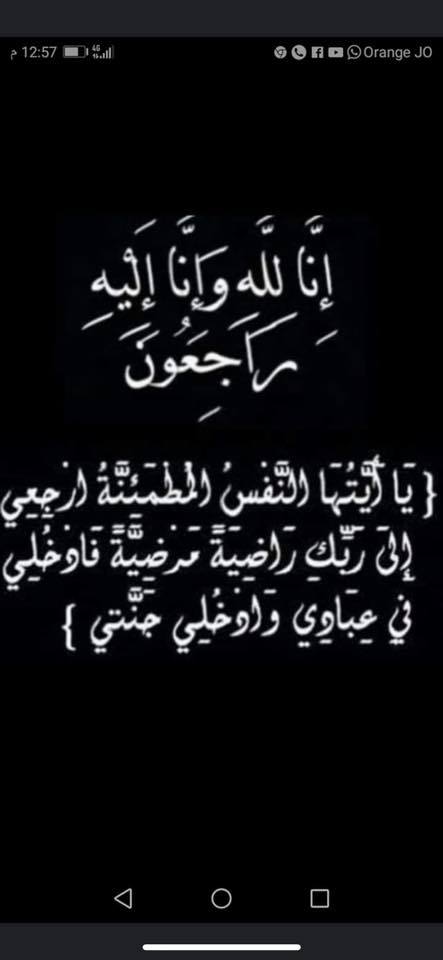 م 12:57 4G Orange JO
إِنَّا لِلَّهِ وَإِنَّا إِلَيْهِ
رَاجِعُونَ
{ يَا أَيَّتُهَا النَّفْسُ الْمُطْمَئِنَّةُ ارْجِعِي
إِلَى رَبِّكِ رَاضِيَةً مَرْضِيَّةً فَادْخُلِي
فِي عِبَادِي وَادْخُلِي جَنَّتِي }